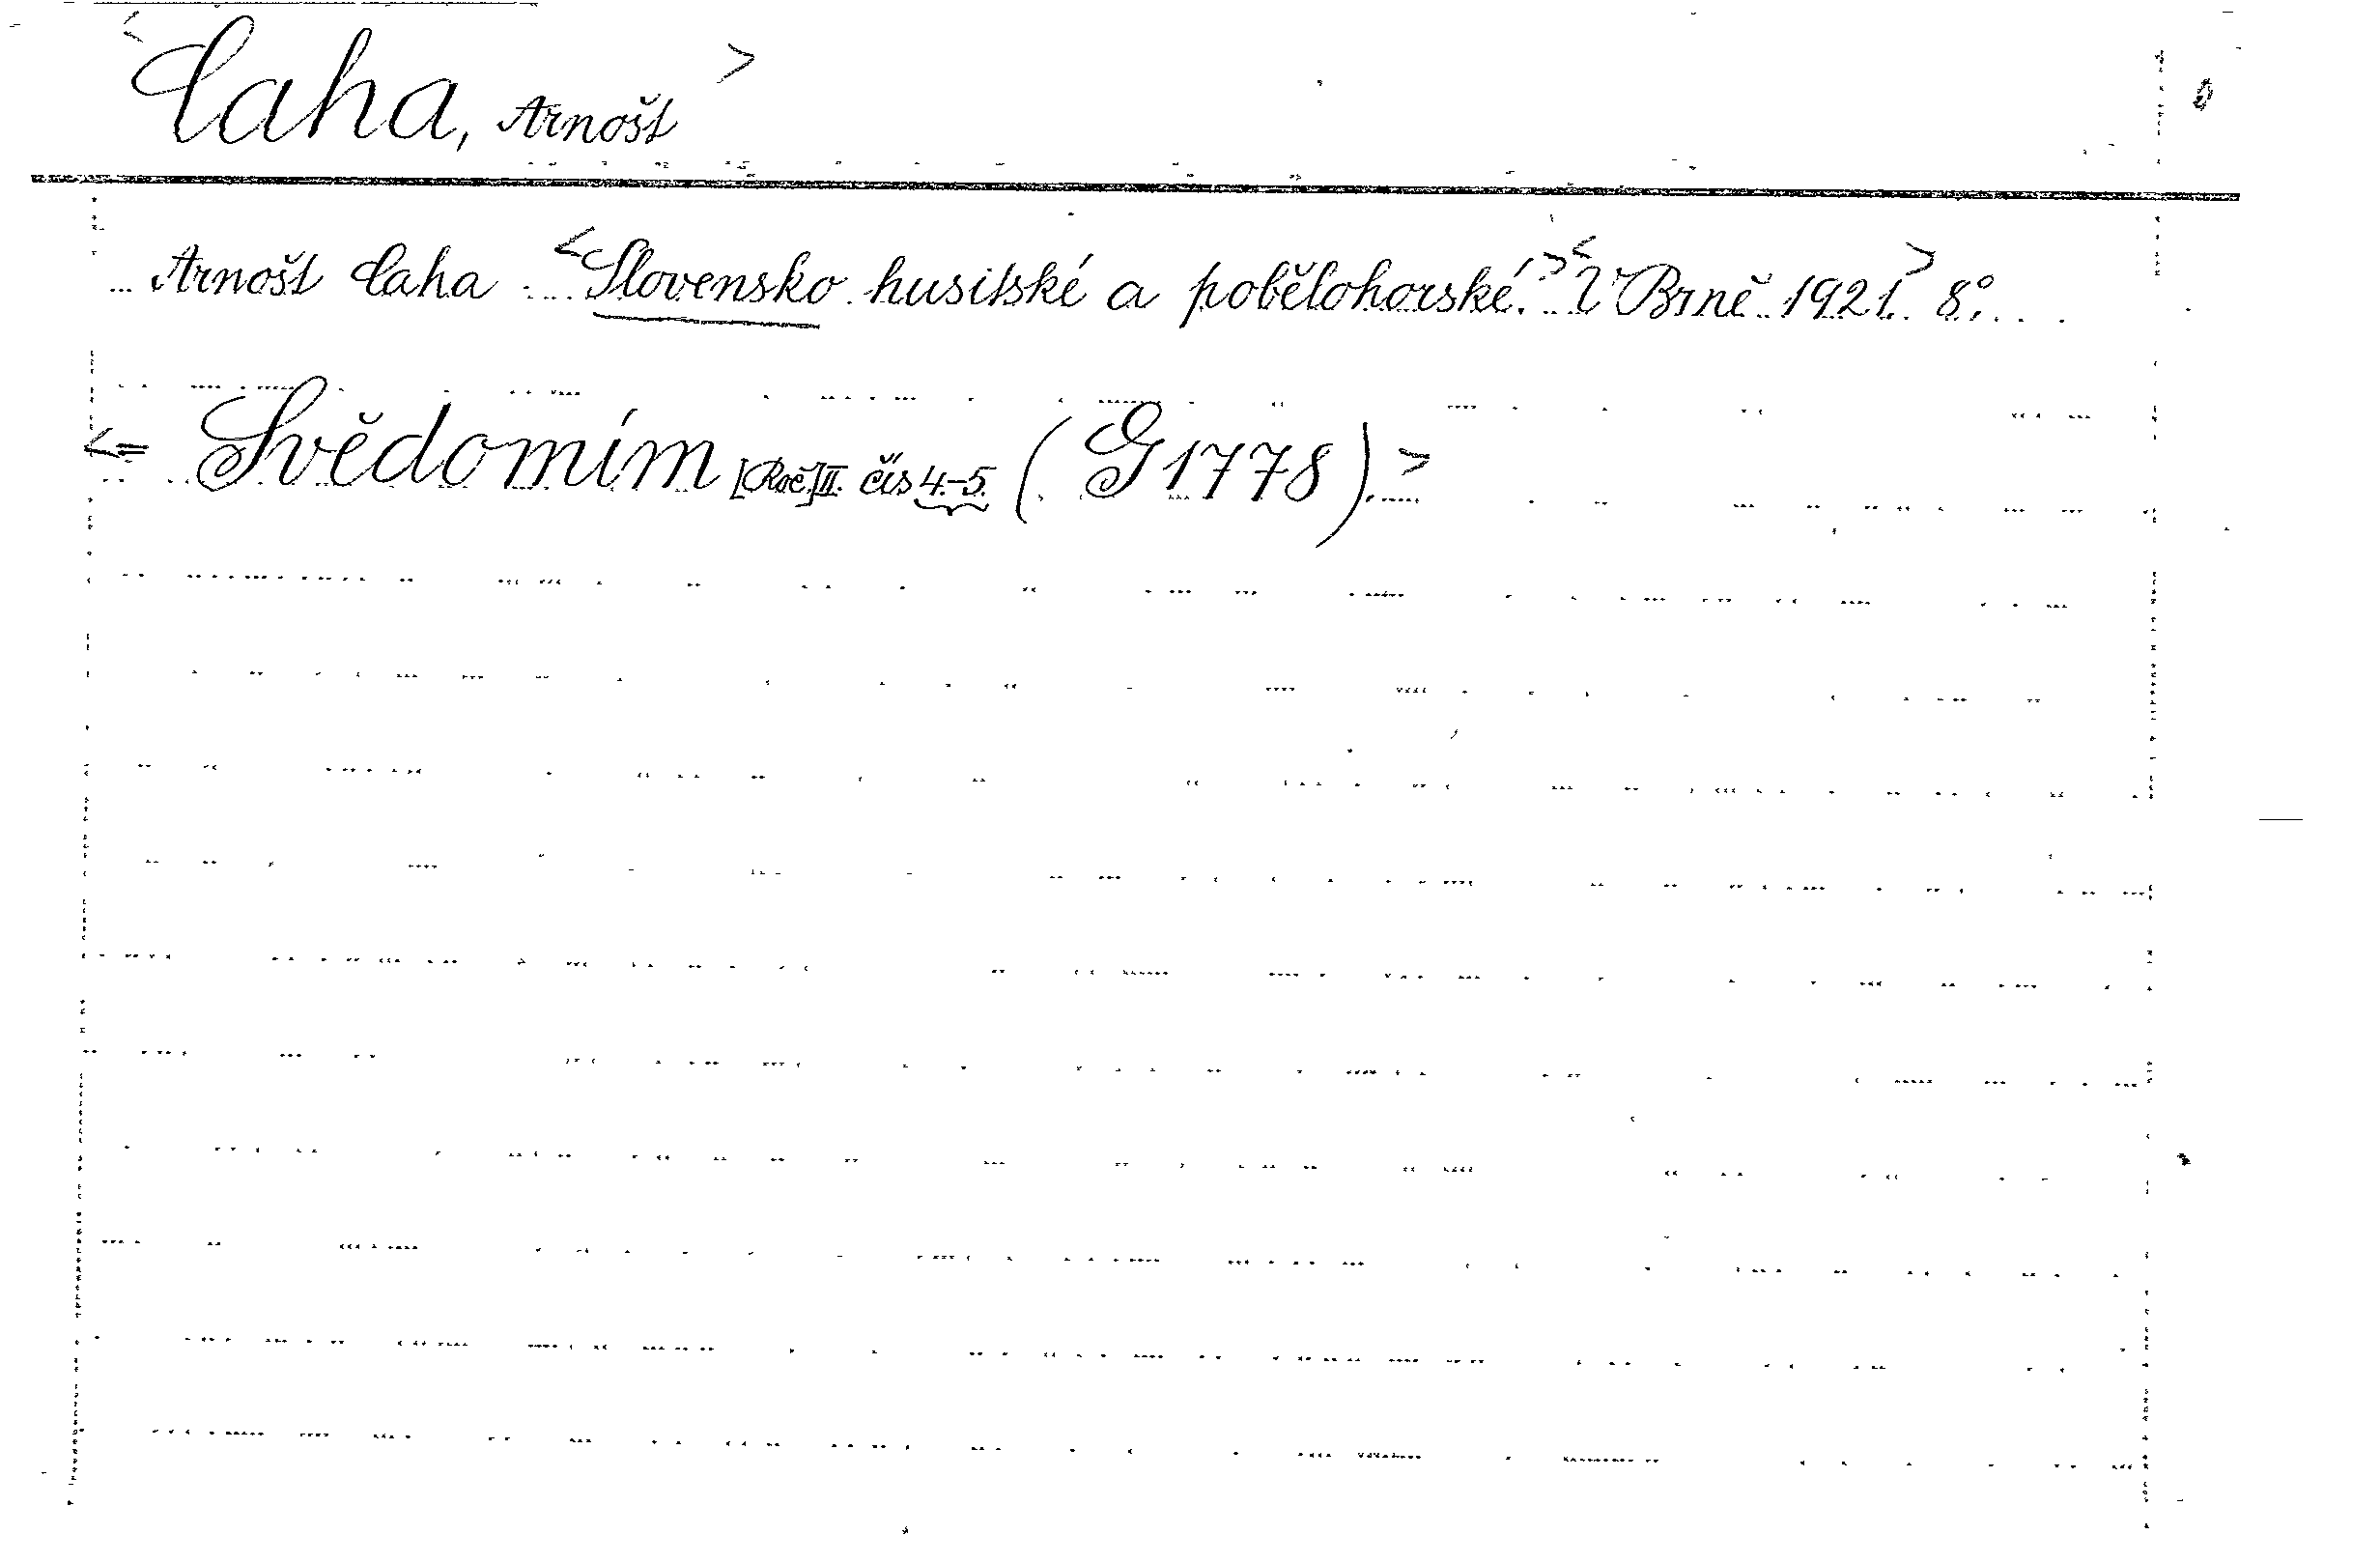 <Caha, Arnošt>
Arnošt Caha <Slovensko husitské a pobělohorské.> <V Brně 1921.> 8°.
<= Svědomím [Roč.] II. čís 4.-5. (G 1778).>